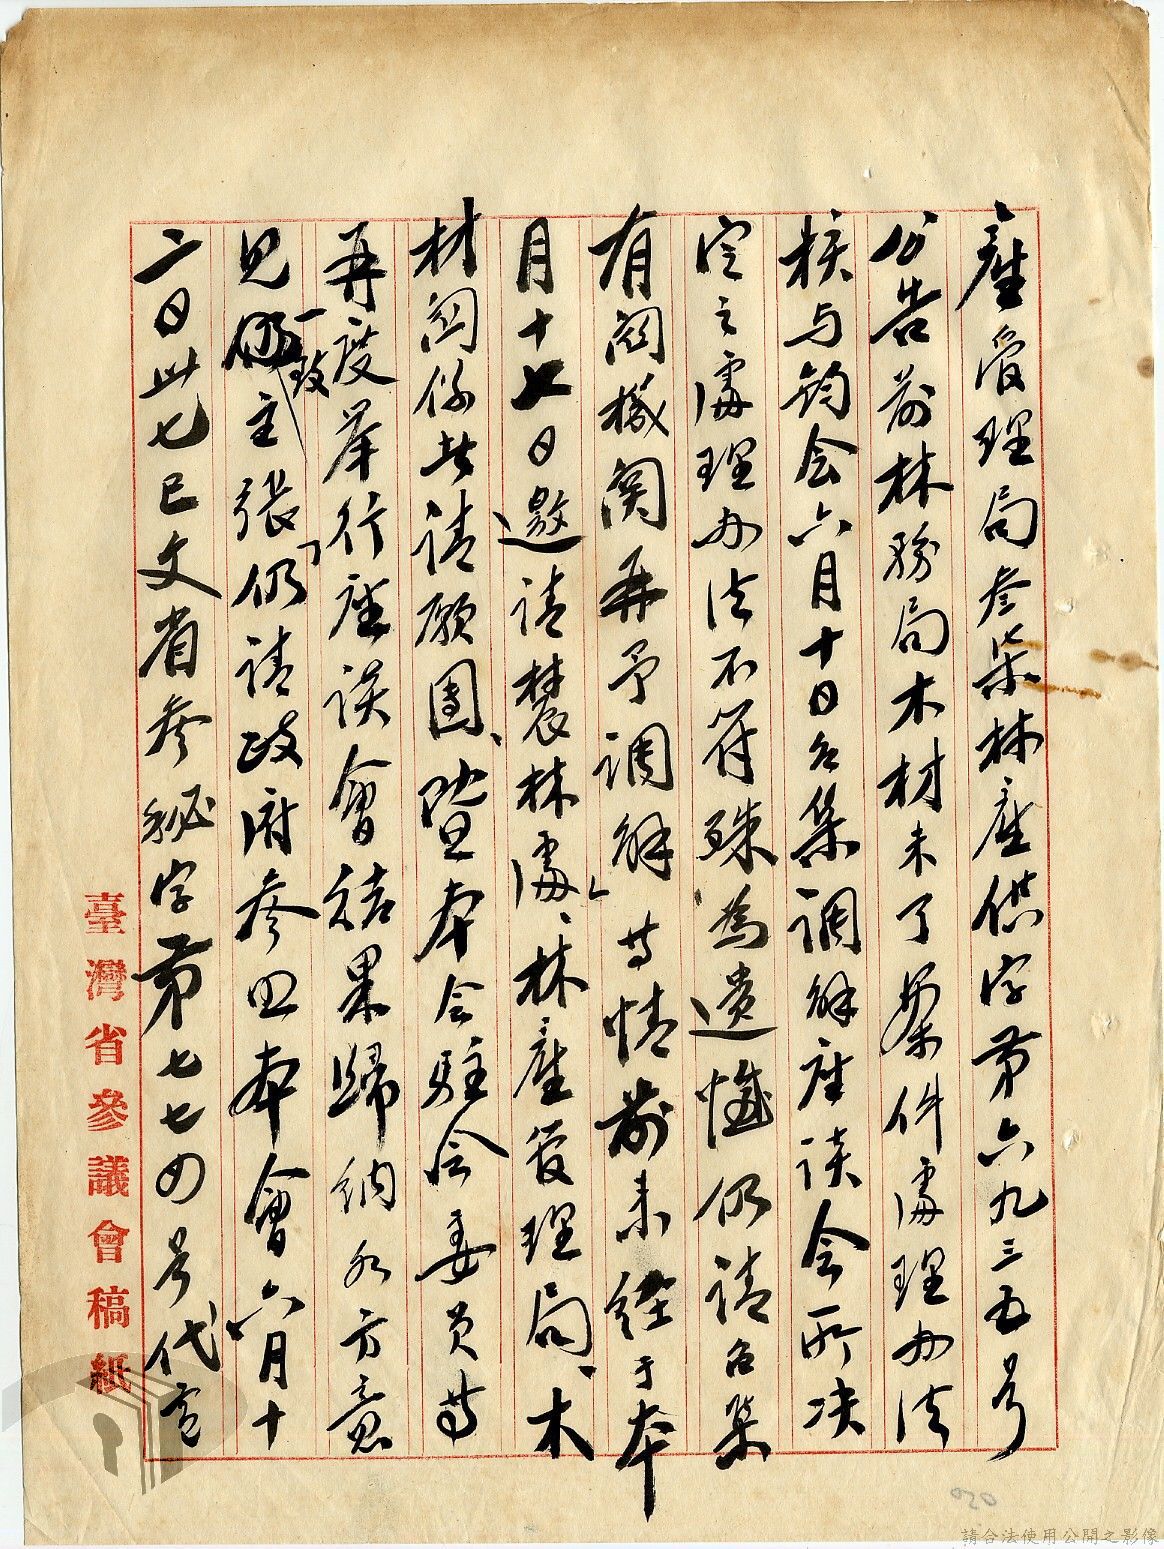 產管理局叁柒林產供字第六九三五号
公告前林務局木材未了案件處理办法
核与鈞会六月十日召集調解座談会所决
定之處理办法不符殊為遺憾仍請召集
有関機関再予調解」等情前來經于本
月十七日邀請農林處、林產管理局、木
材関係者請願團、暨本会駐会委員等
再度举行座談會結果歸納各方意
見一致主張「仍請政府參照本會六月十
二日卅七巳文省參秘字第七七四号代電
臺灣省參議會稿紙
020
請合法使用公開之影像